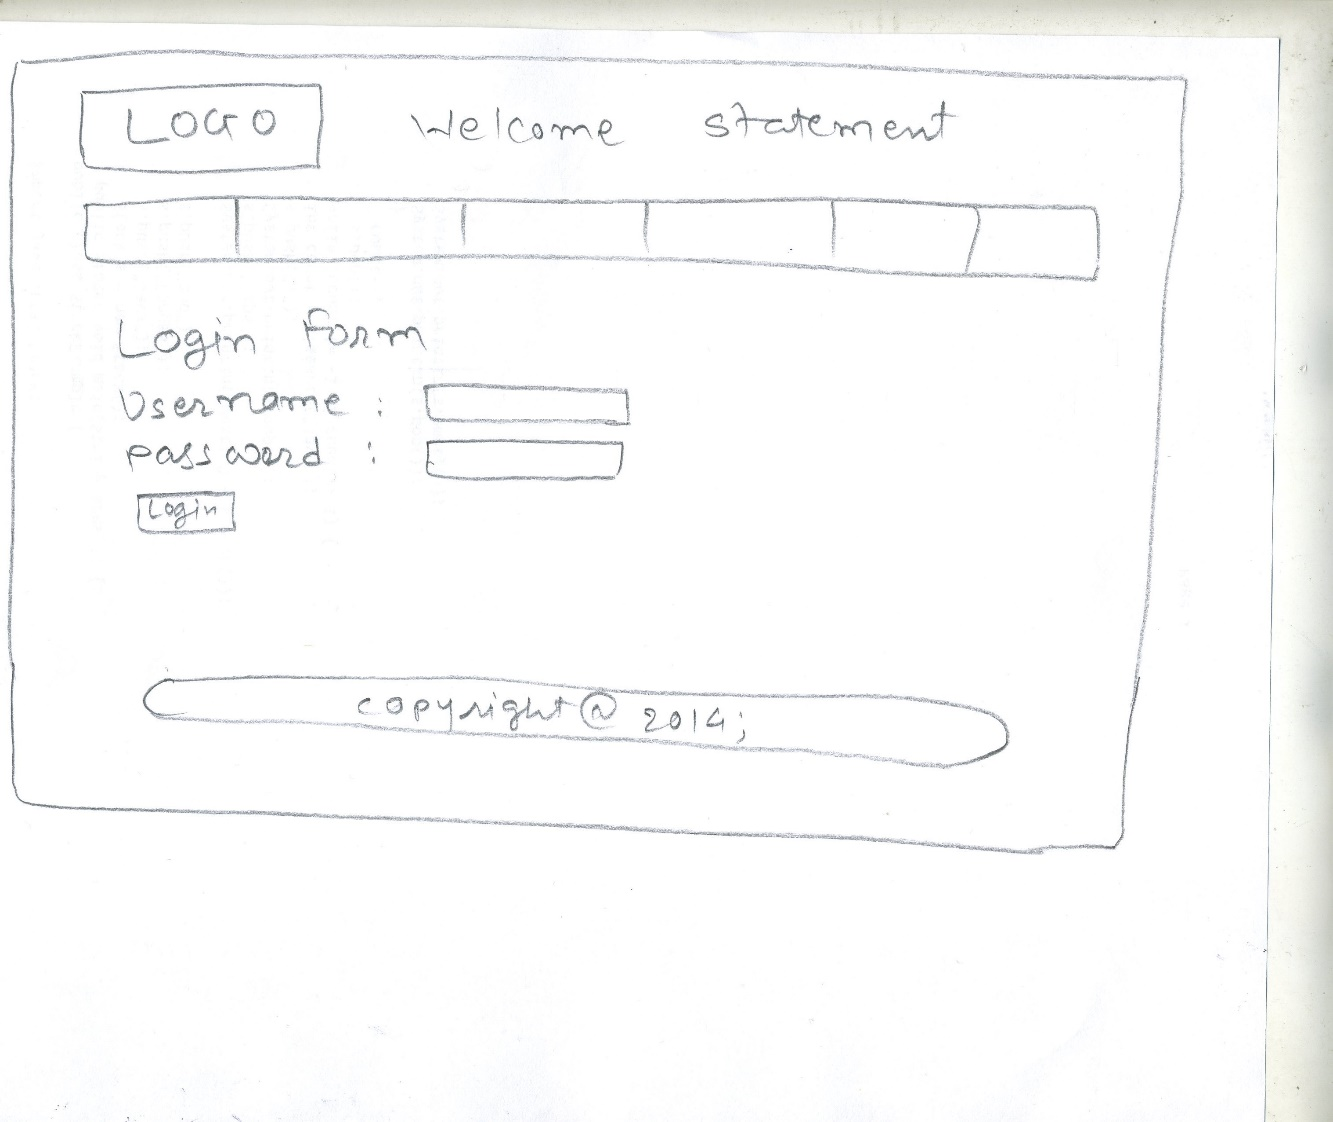 LOGO Welcome statement
Login Form
Username :
password :
Login
copyright@ 2014;